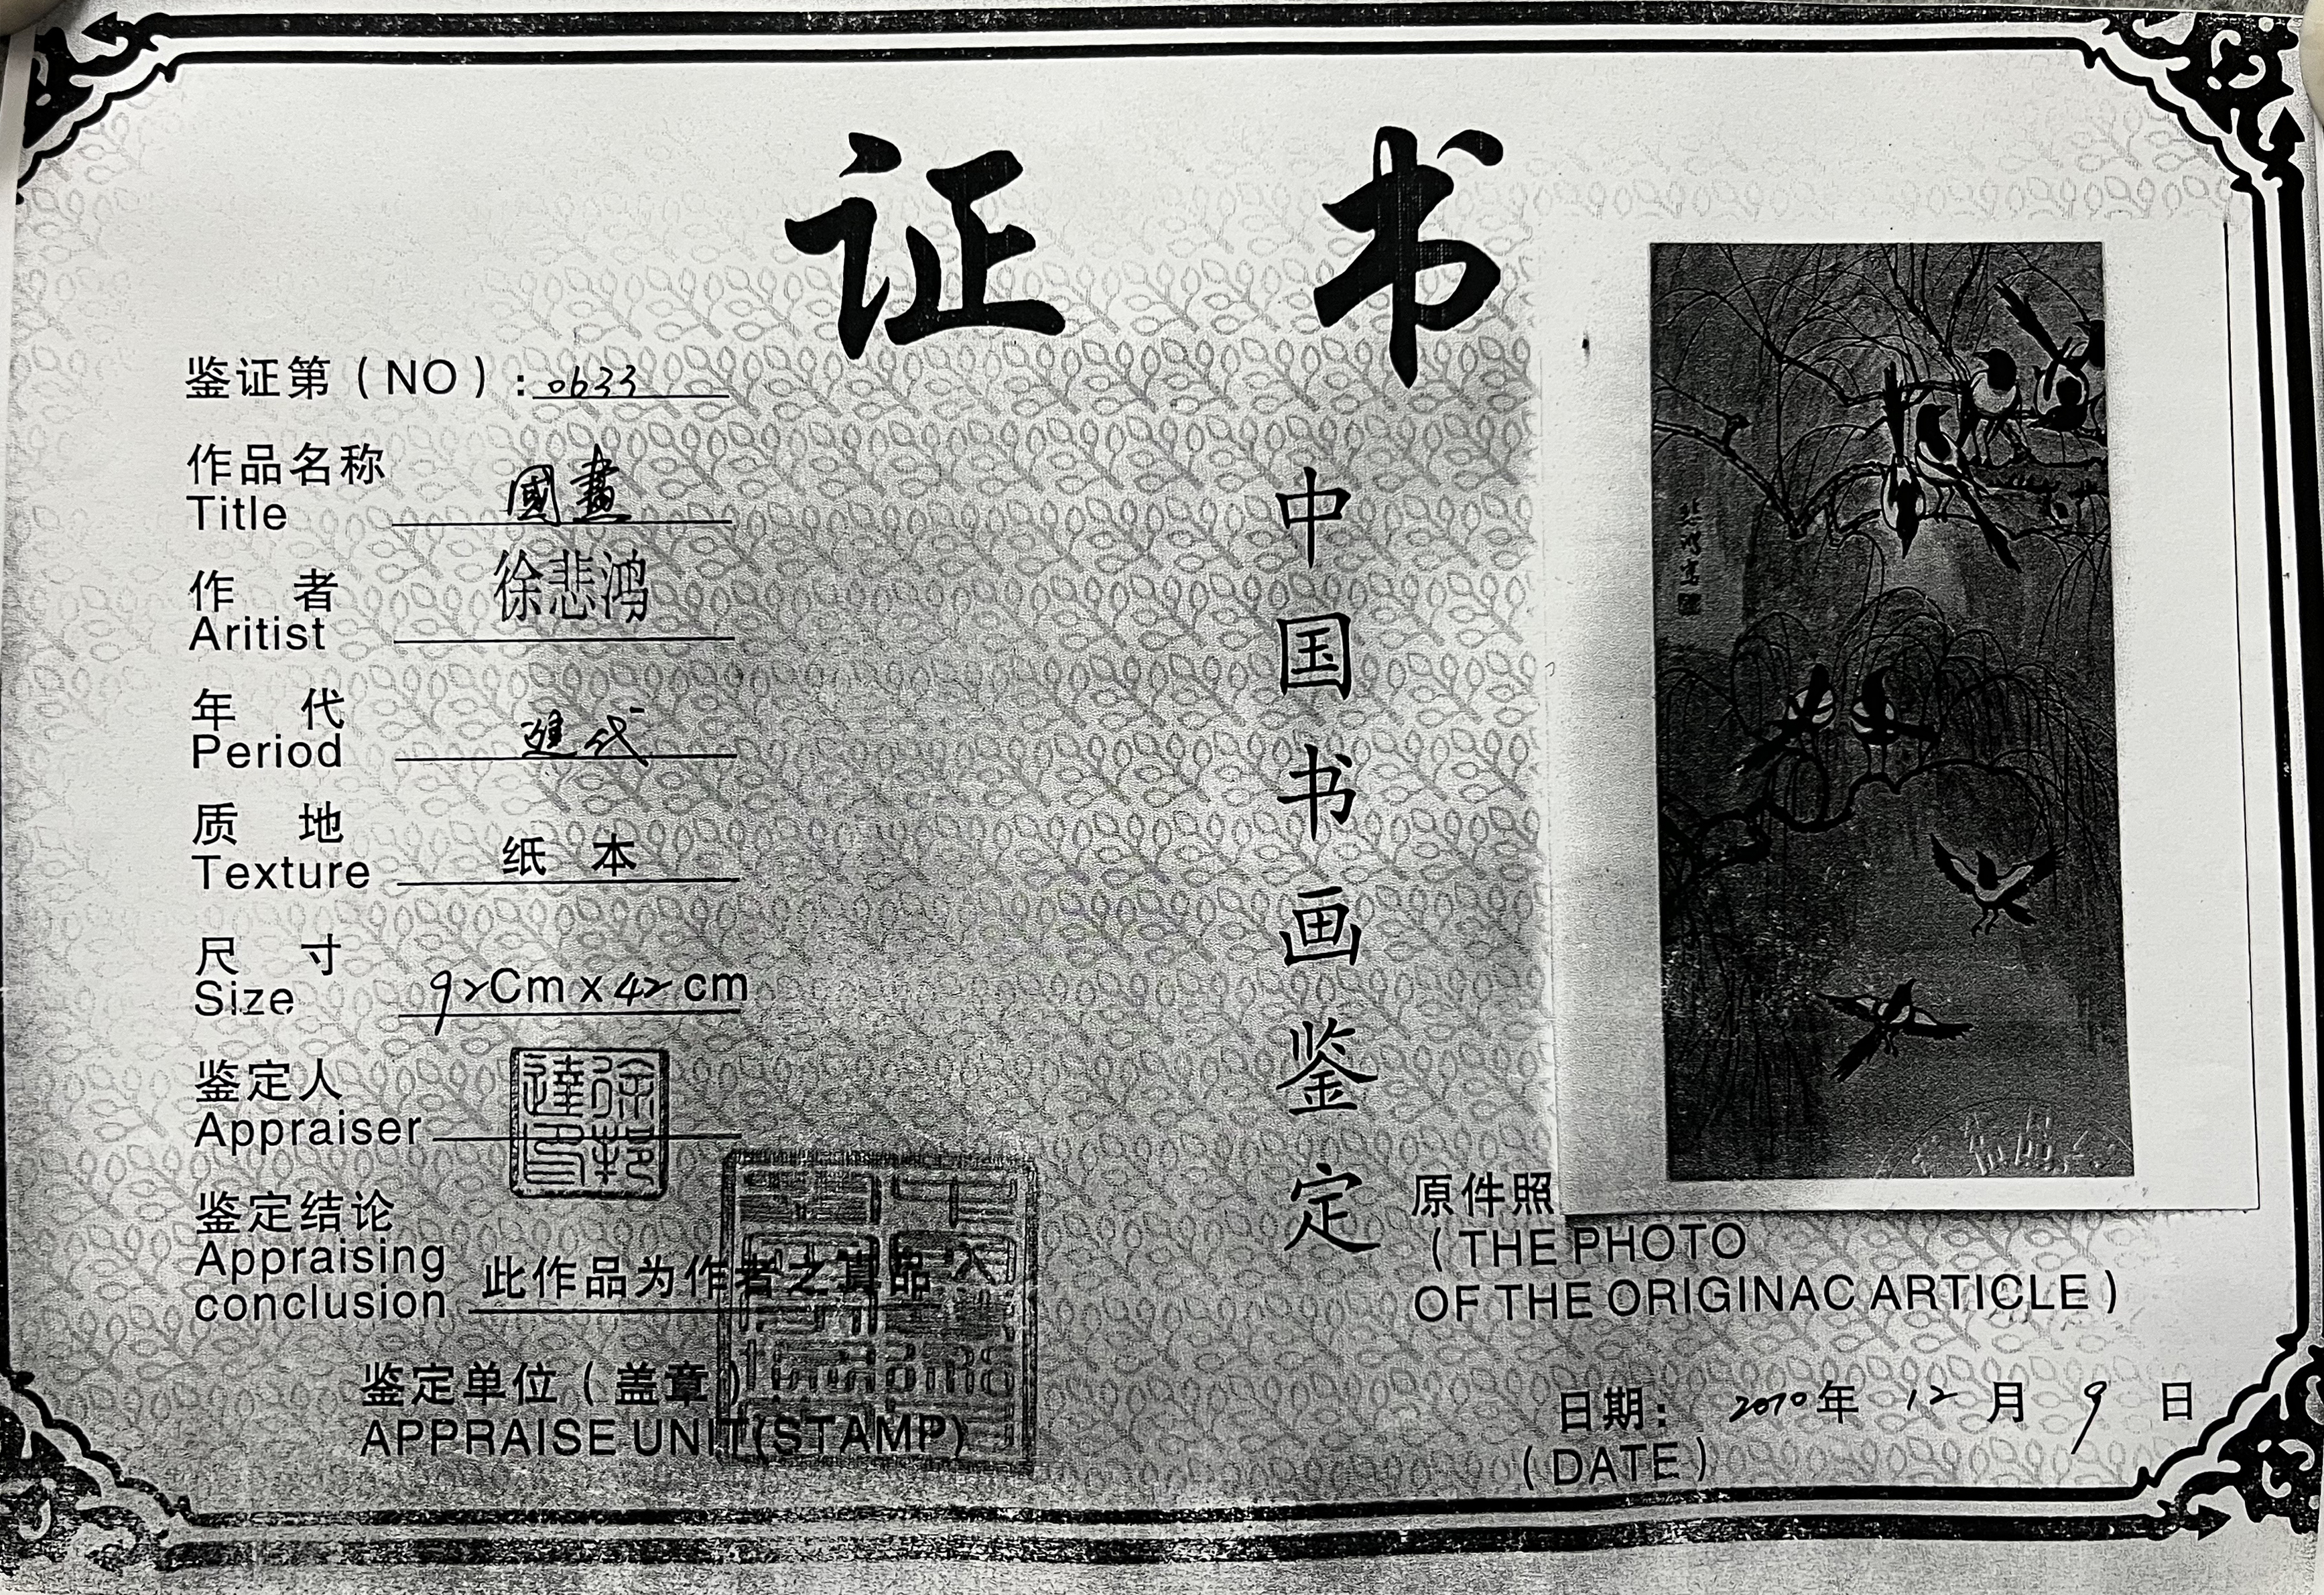 证书
鉴证第（NO）：0633
作品名称 國畫
Title
作者 徐悲鸿
Aritist
年代
Period 近代
质地
Texture 纸本
尺寸
Size 92Cm x 42cm
鉴定人
Appraiser
徐邦達印
鉴定结论
Appraising
conclusion 此作品为作者之真品
鉴定单位（盖章）
APPRAISE UNIT(STAMP)
中国书画鉴定
悲鴻寫
原件照
（THE PHOTO
OF THE ORIGINAC ARTICLE）
日期： 2010年12月9日
（DATE）